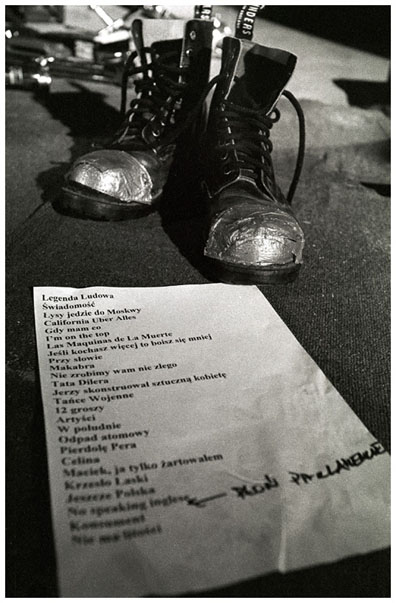 NDERS
Legenda Ludowa
Świadomość
Łysy jedzie do Moskwy
California Uber Alles
Gdy mam co
I'm on the top
Las Maquinas de La Muerte
Jeśli kochasz więcej to boisz się mniej
Przy słowie
Makabra
Nie zrobimy wam nic złego
Tata Dilera
Jerzy skonstruował sztuczną kobietę
Tańce Wojenne
12 groszy
Artyści
W południe
Odpad atomowy
Pierdolę Pera
Celina
Maciek, ja tylko żartowałem
Krzesło Łaski
Jeszcze Polska
No speaking inglese PŁOŃ
Konsument
Nie ma litości